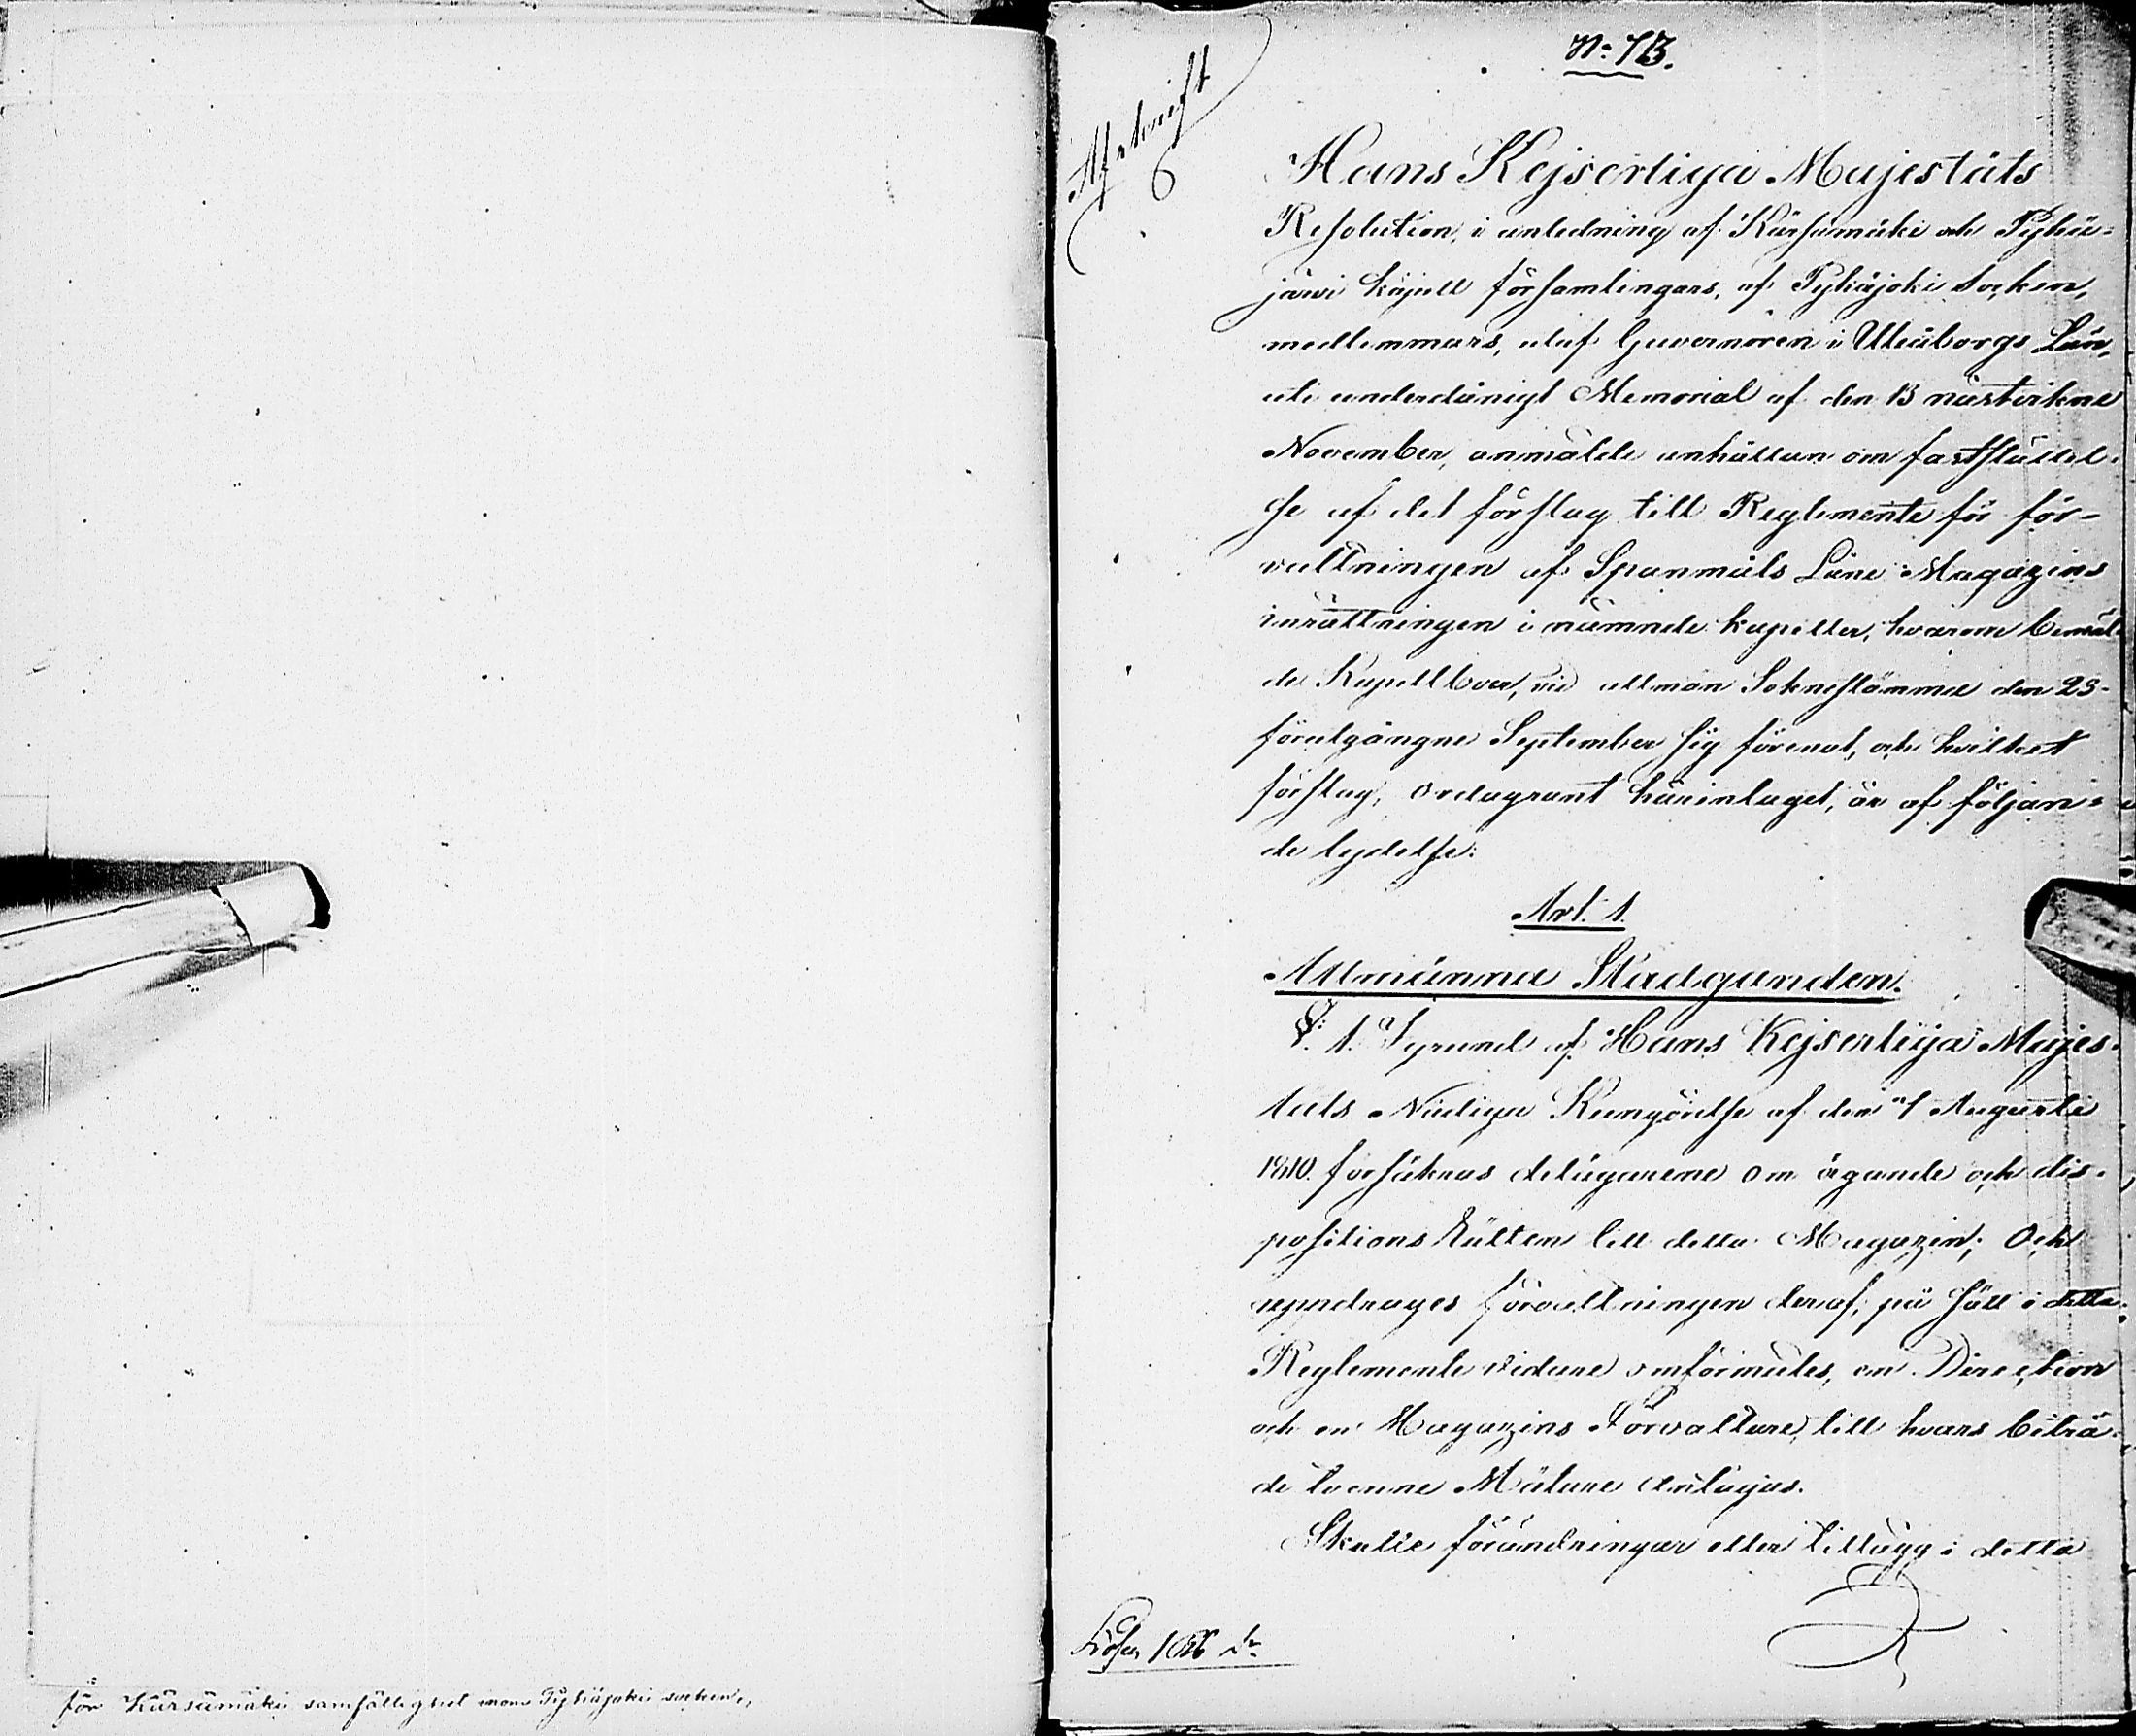 för Kärsämäki samfällighet inom Pyhäjoki socken,,
N:o 73.
Afskrift
Hans Kejserliga Majestäts
Resolution, i anledning af Kärsamäki och Pyhä-
järvi kapell församlingars, af Pyhäjoki Socken,
medlemmars, utaf Guvernören i Uleåborgs Län,
uti underdånigt Memorial af den 13 nästvikne
November, anmälde anhållan om fastställel-
se af det förslag till Reglemente för för-
valtningen af Spanmåls Låne Magazins
inrättningen i nämnde kapeller, hvarom bemäl-
de Kapellboer, vid allmän Soknestämma den 23
förutgångne September sig förenat, och hvilket
förslag, ordagrant härintaget, är af följan-
de lydelse:
Art. 1.
Allmänna Stadganden.
§. 1. I grund af Hans Kejserliga Majes-
täts Nådiga Kungörelse af den 1 Augusti
1810. försäkras delägarene om ägande och dis-
positions rätten till detta Magazin; Och
uppdrages förvaltningen deraf, på sätt i detta
Reglemente vidare omförmäles, en Direction
och en Magazins Förvaltare, till hvars biträ-
de tvenne Mätare antagas.
Skulle förändringar eller tillägg i detta